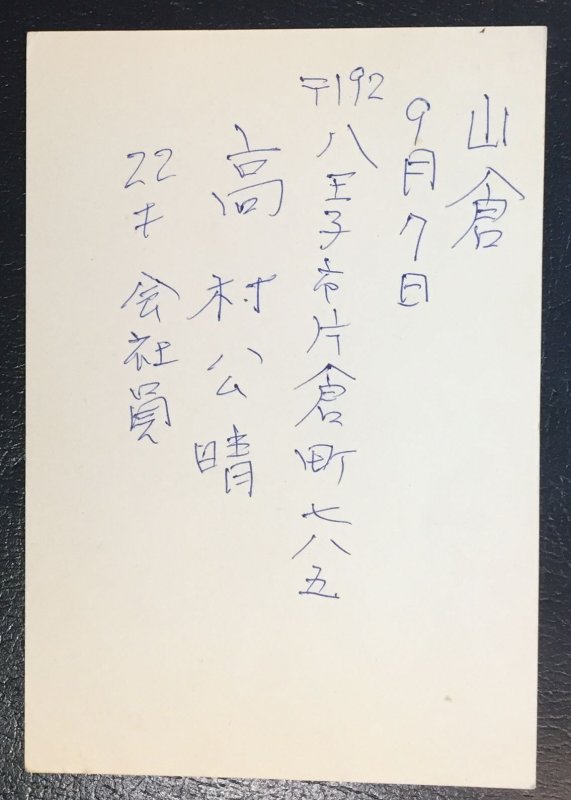 山倉
9月7日
〒192
八王子市片倉町七八五
高村公晴
22才 会社員